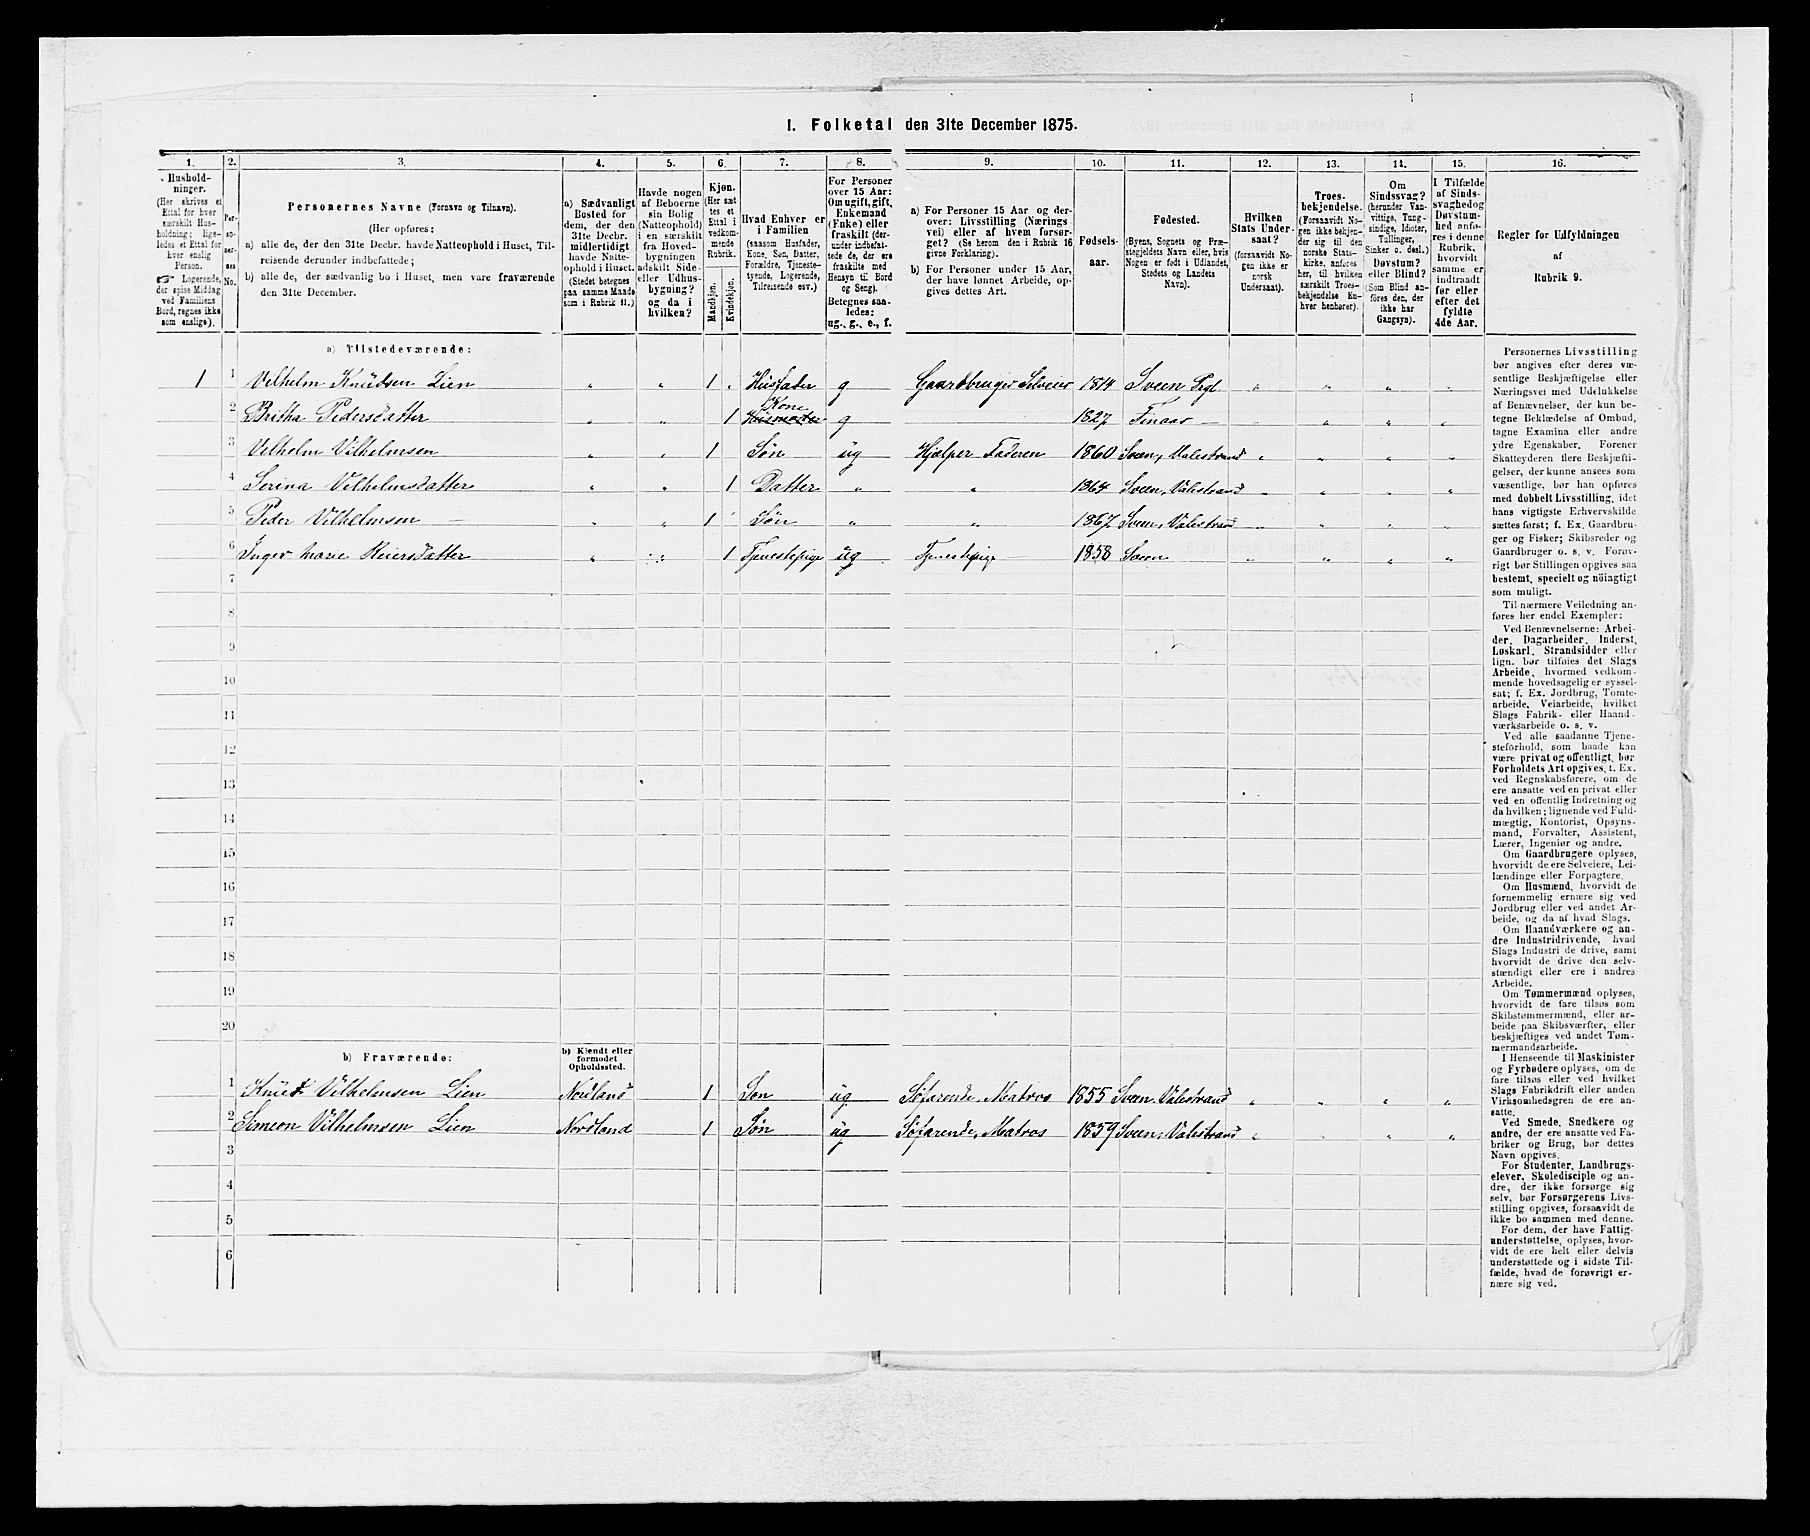 1. Folketal den 31te December 1875.
1. 2. 3. 4. 5. 6. 7. 8. 9. 10. 11. 12. 13. 14. 15. 16.
Hushold-
ninger.
(Her skrives et
Ettal for hver
særskilt Hus-
holdning; lige-
ledes et Ettal for
hver enslig
Person.
☞ Logerende,
der spise Middag
ved Familiens
Bord, regnes ikke
som enslige).
Per-
so-
ner-
nes
No.
Personernes Navne (Fornavn og Tilnavn).
(Her opføres:
a) alle de, der den 31te Decbr. havde Natteophold i Huset, Til-
reisende derunder indbefattede;
b) alle de, der sædvanlig bo i Huset, men vare fraværende
den 31te December.
a) Sædvanligt
Bosted for
dem, der den
31te Decbr.
midlertidigt
havde Natte-
ophold i Huset.
(Stedet betegnes
paa samme Maade
som i Rubrik 11.)
Havde nogen
af Beboerne
sin Bolig
(Natteophold)
i en særskilt
fra Hoved-
bygningen
adskilt Side-
eller Udhus-
bygning?
og da i
hvilken?
Kjøn.
(Her sæt
tes et
Ettal i
vedkom-
mende
Rubrik.
Mandkjøn.
Kvindekjøn.
Hvad Enhver er
i Familien
(saasom Husfader,
Kone, Søn, Datter,
Forældre, Tjeneste-
tyende, Logerende,
Tilreisende osv.)
For Personer
over 15 Aar:
Om ugift, gift,
Enkemand
(Enke) eller
fraskilt (der-
under indbefat-
tede de, der ere
fraskilte med
Hensyn til Bord
og Seng).
Betegnes saa-
ledes:
ug., g., e., f.
a) For Personer 15 Aar og der-
over: Livsstilling (Nærings
vei) eller af hvem forsør-
get? (Se herom den i Rubrik 16
givne Forklaring).
b) For Personer under 15 Aar,
der have lønnet Arbeide, op-
gives dettes Art.
Fødsels-
aar.
Fødested.
(Byens, Sognets og Præ-
stegjeldets Navn eller, hvis
Nogen er født i Udlandet,
Stedets og Landets
Navn).
Hvilken
Stats Under-
saat?
(forsaavidt No-
gen ikke er
norsk
Undersaat).
Troes-
bekjendelse.
(Forsaavidt No-
gen ikke bekjen-
der sig til den
norske Stats-
kirke, anføres
her, til hvilken
særskilt Troes-
bekjendelse En-
hver henhører).
Om
Sindssvag?
(herunder Van-
vittige, Tung-
sindige, Idioter,
Tullinger,
Sinker o. desl.)
Døvstum?
eller Blind?
(Som Blind an-
føres den, der
ikke har
Gangsyn).
I Tilfælde
af Sinds-
svaghed og
Døvstum-
hed anfø-
res i denne
Rubrik,
hvorvidt
samme er
indtraadt
før eller
efter det
fyldte
4de Aar.
Regler for Udfyldningen
af
Rubrik 9.
a) Tilstedeværende:
1 1 Vilhelm Knudsen Lien " " 1 " Husfader g Gaardbruger Selveier 1814 Sveen Pgl " " " "
2 Britha Pedersdatter " " 1 Kone Husmoder g 1827 Finaas — " " "
3 Vilhelm Vilhelmsen " " 1 Søn ug Hjælper Faderen 1860 Sveen, Valestrand " " " "
4 Serina Vilhelmsdatter " " 1 Datter " " 1864 Sveen, Valestrand " " " "
5 Peder Vilhelmsen — " " 1 Søn " " 1867 Sveen, Valestrand " " " "
6 Inger Marie Reiersdatter " " 1 Tjenestepige ug Tjenestepige 1858 Sveen " " " "
7
8
9
10
11
12
13
14
15
16
17
18
19
20
b) Fraværende:
b) Kjendt eller
formodet
Opholdssted.
1 Knudt Vilhelmsen Lien Nordland 1 Søn ug Søfarende, Matros 1855 Sveen, Valestrand " " " "
2 Simeon Vilhelmsen Lien Nordland 1 Søn ug Søfarende, Matros 1859 Sveen, Valestrand " " " "
3
4
5
6
Personernes Livsstilling
bør angives efter deres væ-
sentlige Beskjæftigelse eller
Næringsvei med Udelukkelse
af Benævnelser, der kun be-
tegne Beklædelse af Ombud,
tagne Examina eller andre
ydre Egenskaber. Forener
Skatteyderen flere Beskjæfti-
gelser, der kunne ansees som
væsentlige, bør han opføres
med dobbelt Livsstilling, idet
hans vigtigste Erhvervskilde
sættes først; f. Ex. Gaardbru-
ger og Fisker; Skibsreder og
Gaardbruger o. s. v. Forøv-
rigt bør Stillingen opgives saa
bestemt, specielt og nöiagtigt
som muligt.
Til nærmere Veiledning an-
føres her endel Exempler:
Ved Benævnelserne: Arbei-
der, Dagarbeider, Inderst,
Løskarl, Strandsidder eller
lign. bør tilføies det Slags
Arbeide, hvormed vedkom-
mende hovedsagelig er syssel-
sat; f. Ex. Jordbrug, Tomte-
arbeide, Veiarbeide, hvilket
Slags Fabrik- eller Haand-
værksarbeide o. s. v.
Ved alle saadanne Tjene-
steforhold, som baade kan
være privat og offentligt, bør
Forholdets Art opgives, t. Ex.
ved Regnskabsførere, om de
ere ansatte ved en privat eller
ved en offentlig Indretning og
da hvilken; lignende ved Fuld-
mægtig, Kontorist, Opsyns-
mand, Forvalter, Assistent,
Lærer, Ingeniør og andre.
Om Gaardbrugere oplyses,
hvorvidt de ere Selveiere, Lei-
lændinge eller Forpagtere.
Om Husmænd, hvorvidt de
fornemmelig ernære sig ved
Jordbrug eller ved andet Ar-
beide, og da af hvad Slags.
Om Haandværkere og an-
dre Industridrivende, hvad
Slags Industri de drive, samt
hvorvidt de drive den selv-
stændigt eller ere i andres
Arbeide.
Om Tømmermænd oplyses,
hvorvidt de fare tilsøs som
Skibstømmermænd, eller ar-
beide paa Skibsværfter, eller
beskjæftiges ved andet Tøm-
mermandsarbeide.
I Henseende til Maskinister
og Fyrbødere oplyses, om de
fare tilsøs eller ved hvilket
Slags Fabrikdrift eller anden
Virksomhedsgren de ere an-
satte.
Ved Smede, Snedkere og
andre, der ere ansatte ved Fa-
briker og Brug, bør dettes
Navn opgives.
For Studenter, Landbrugs-
elever, Skoledisciple og an-
dre, der ikke forsørge sig
selv, bør Forsørgerens Livs-
stilling opgives, forsaavidt de
ikke bo sammen med denne.
For dem, der have Fattig-
understøttelse, oplyses, hvor-
vidt de ere helt eller delvis
understøttede og i sidste Til-
fælde, hvad de forøvrigt er-
nære sig ved.